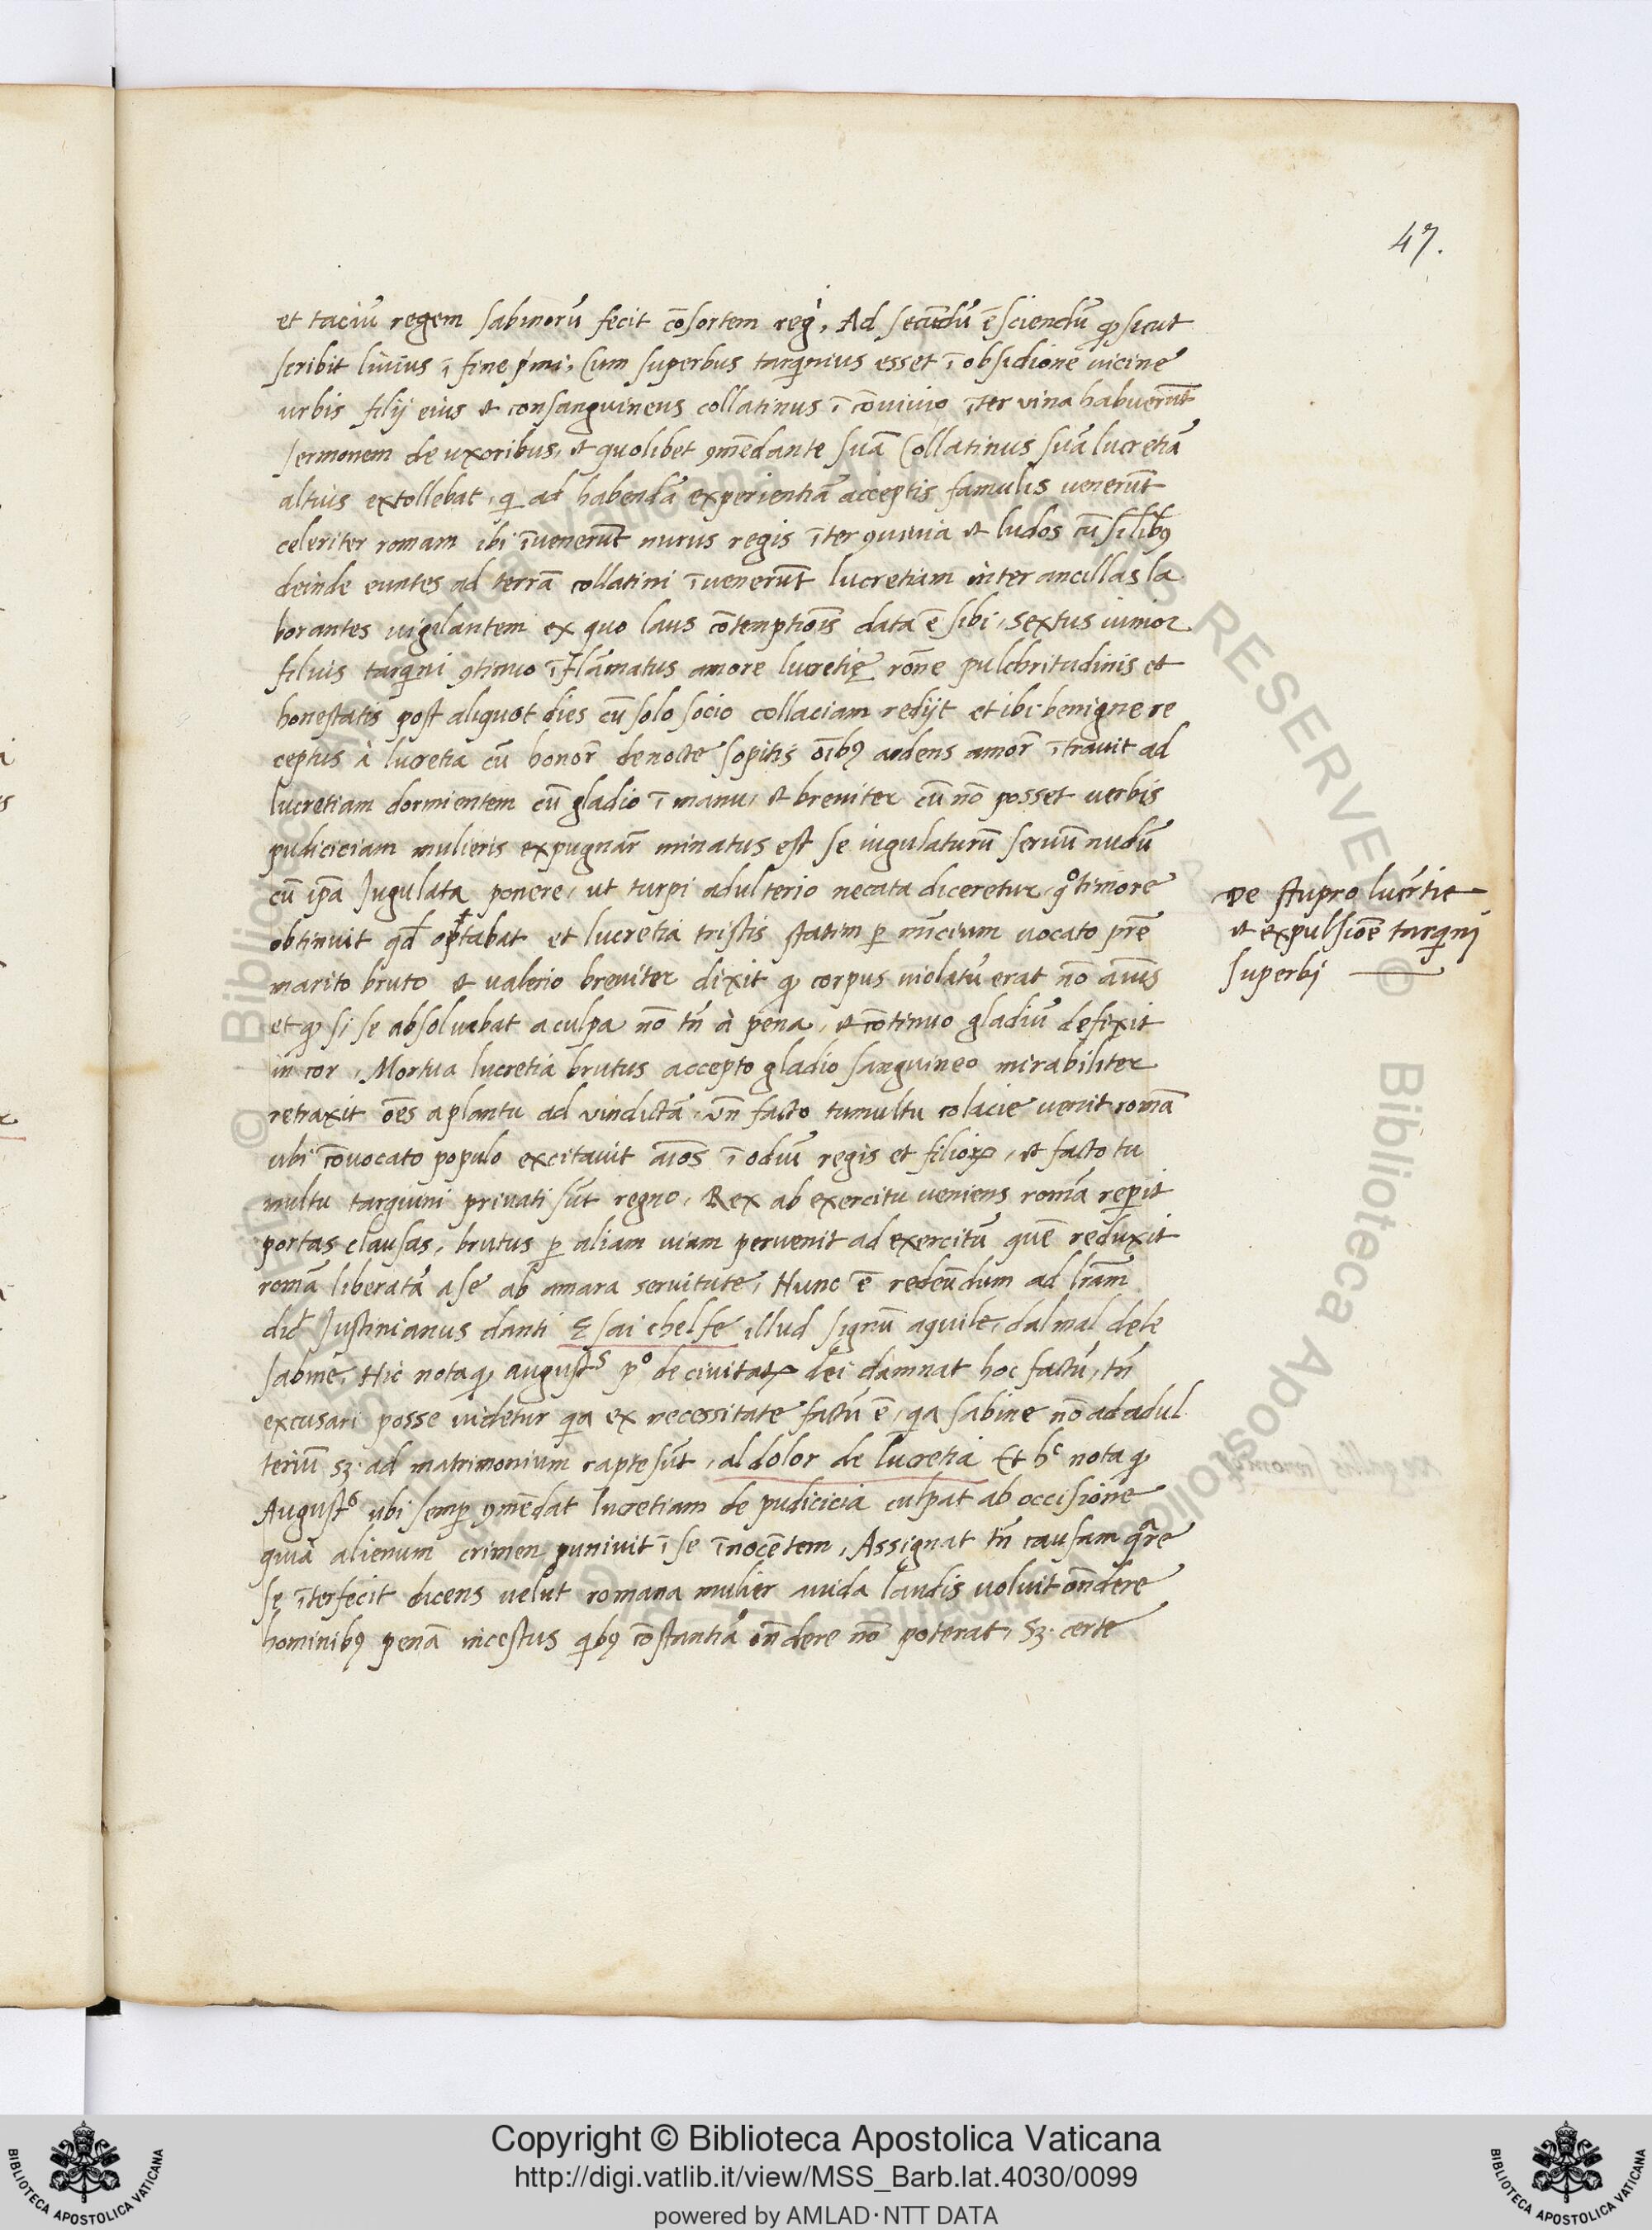 47.
et taciū regem sabinorū fecit cōsortem regⁱ, Ad secūdū ē sciendū ꝙ sicut
scribit livius ī fine pͥmi, Cum superbus tarqͥnius esset ī obsidione vicine
urbis filij eius et consanguineus collatinus ī cōvivio īter vina habuerūt
sermonem de uxoribus, et quolibet ꝯmēdante suā Collatinus suā lucretiā
altius extollebat, qͥ ad habendā experientiā acceptis famulis venerūt
celeriter romam ibi īvenerūt nurus regis īter ꝯvivia et ludos cū silibꝰ
deinde euntes ad terrā collatini īvenerūt lucretiam inter ancillas la
borantes vigilantem ex quo laus cōtemptiois̄ data ē sibi, Sextus iunior
filius tarqͥni ꝯtinuo īflāmatus amore lucretię rōne pulchritudinis et
honestatis post aliquot dies cū solo socio collaciam redijt et ibi benigne re
ceptus à lucretia cū honor̄ de nocte sopitis oībꝫ ardens amor̄ ītravit ad
lucretiam dormientem cū gladio ī manu, et breviter cū nō posset verbis
pudiciciam mulieris expugnar̄ minatus est se iugulaturū servū nudū
cū ip̄a Jugulata ponere, ut turpi adulterio necata diceretur, qͦ timore
obtinuit qd̄ optabat et lucretia tristis statim ꝑ nūcium vocato pr̄e
marito bruto et valerio breviter dixit ꝙ corpus violatū erat nō aīus
et ꝙ si se absoluebat a culpa nō tn̄ à pena, et cōtinuo gladiū defixit
in cor, Mortua lucretia brutus accepto gladio sanguineo mirabiliter
retraxit oēs a plantu ad vindictā, un̄ facto tumultu colacie venit romā
ubi cōvocato populo excitavit aīos ī odiū regis et filioꝝ, et facto tu
multu tarquini privati sūt regno, Rex ab exercitu veniens romā reꝑit
portas clausas, brutus ꝑ aliam viam pervenit ad exercitū quē reduxit
romā liberatā a se ab amara servitute, Nunc ē redeūdum ad lr̄am
dic̄ Justinianus danti E sai chel fe illud signū aquile, dal mal dele
sabine, Hic nota ꝙ augustˢ pͦ de civitatꝭ dei damnat hoc factū, tn̄
excusari posse videtur qͥa ex necessitate factū ē, qͥa sabine nō ad adul
teriū sꝫ ad matrimonium rapte sūt, al dolor de lucretia Et hͨ nota ꝙ
Augustˢ ubi semꝑ ꝯmēdat lucretiam de pudicicia culpat ab occisione
quia alienum crimen punivit ī se īnocētem, Assignat tn̄ causam qͣre
se īterfecit dicens velut romana mulier avida laudis voluit on̄dere
hominibꝰ penā incestus qͥbꝰ cōstantiā on̄dere nō poterat, sꝫ certe
De stupro lucr̄tie
et expulsiōe tarqͥnij
superbj
Copyright © Biblioteca Apostolica Vaticana
http://digi.vatlib.it/view/MSS_Barb.lat.4030/0099
powered by AMLAD·NTT DATA
BIBLIOTECA APOSTOLICA VATICANA
BIBLIOTECA APOSTOLICA VATICANA